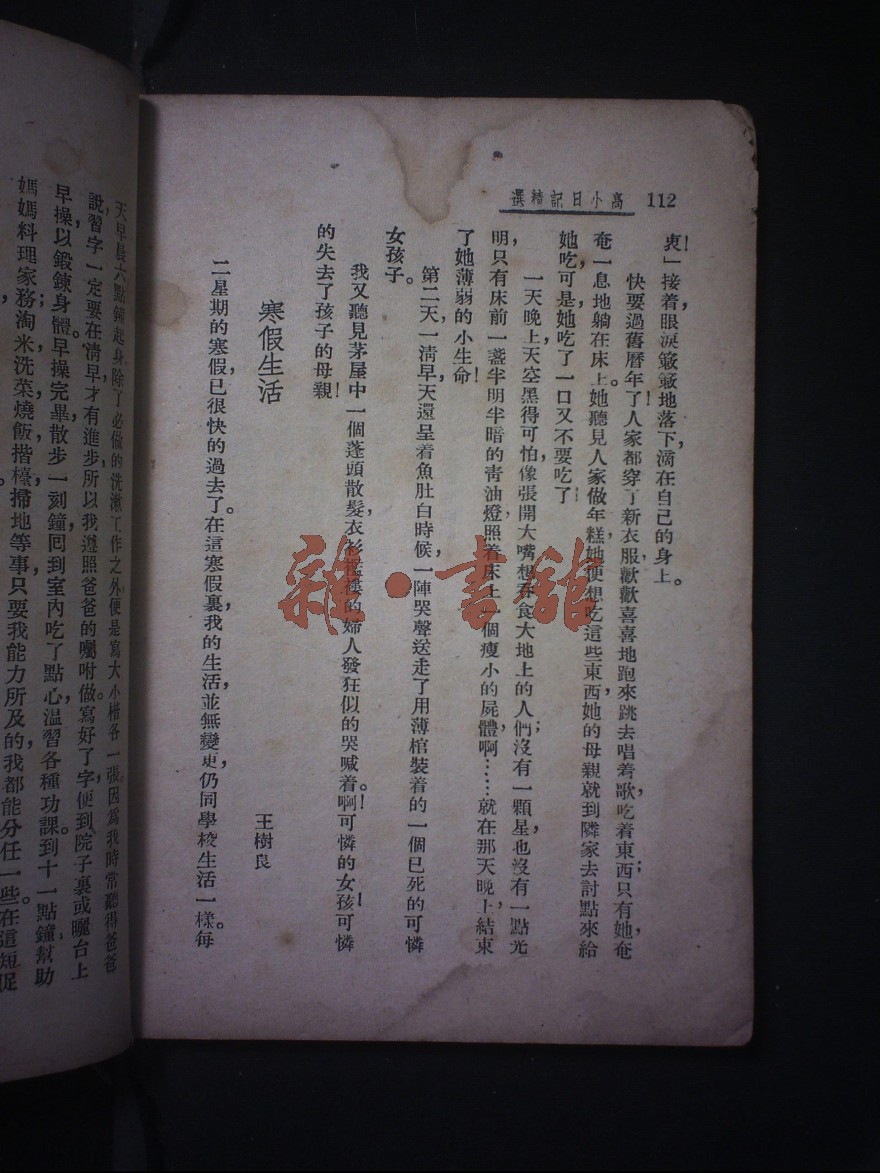 112
高小日記精選
衷！」接着眼淚簌簌地落下，滴在自己的身上。
快要過舊曆年了！人家都穿了新衣服，歡歡喜喜地跑來跳去唱着歌，吃着東西；只有她奄
奄一息地躺在床上。她聽見人家做年糕，她便想吃這些東西，她的母親就到隣家去討點來給
她吃，可是，她吃了一口又不要吃了！
一天晚上，天空黑得可怕，像張開大嘴想吞食大地上的人們；沒有一顆星，也沒有一點光
明，只有床前一盞半明半暗的青油燈，照着床上一個瘦小的屍體，啊……就在那天晚上，結束
了她薄弱的小生命！
第二天，一清早，天還呈着魚肚白時候，一陣哭聲，送走了用薄棺裝着的一個已死的可憐
女孩子。
我又聽見茅屋中一個蓬頭散髮，衣衫襤褸的婦人發狂似的哭喊着。啊！可憐的女孩！可憐
的失去了孩子的母親！
寒假生活
王樹良
二星期的寒假，已很快的過去了。在這寒假裏，我的生活並無變更，仍同學校生活一樣。每
天早晨六點鐘起身，除了必做的洗漱工作之外，便是寫大小楷各一張。因爲我時常聽得爸爸
說，習字一定要在清早，才有進步，所以我遵照爸爸的囑咐做。寫好了字，便到院子裏或曬台上
早操，以鍛鍊身體；早操完畢，散步一刻鐘，囘到室內，吃了點心，溫習各種功課。到十一點鐘，幫助
媽媽料理家務，淘米，洗菜，燒飯，揩檯，掃地等事，只要我能力所及的，我都能分任一些。在這短促
雜·書館